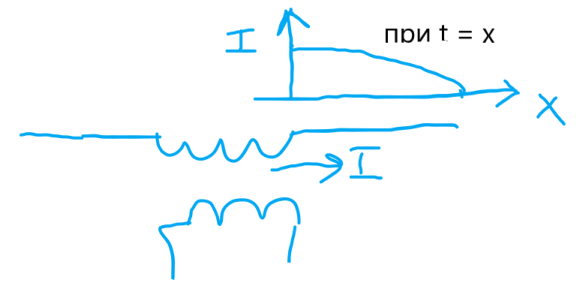 I
при t = x
X
I